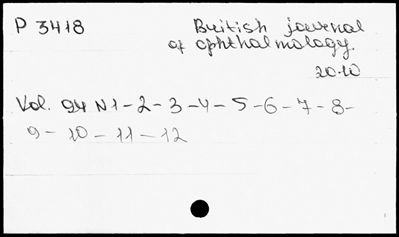 P 3418 British journal
of ophthalmology.
2010
Vol. 94 N1-2-3-4-5-6-7-8-
9-10-11-12